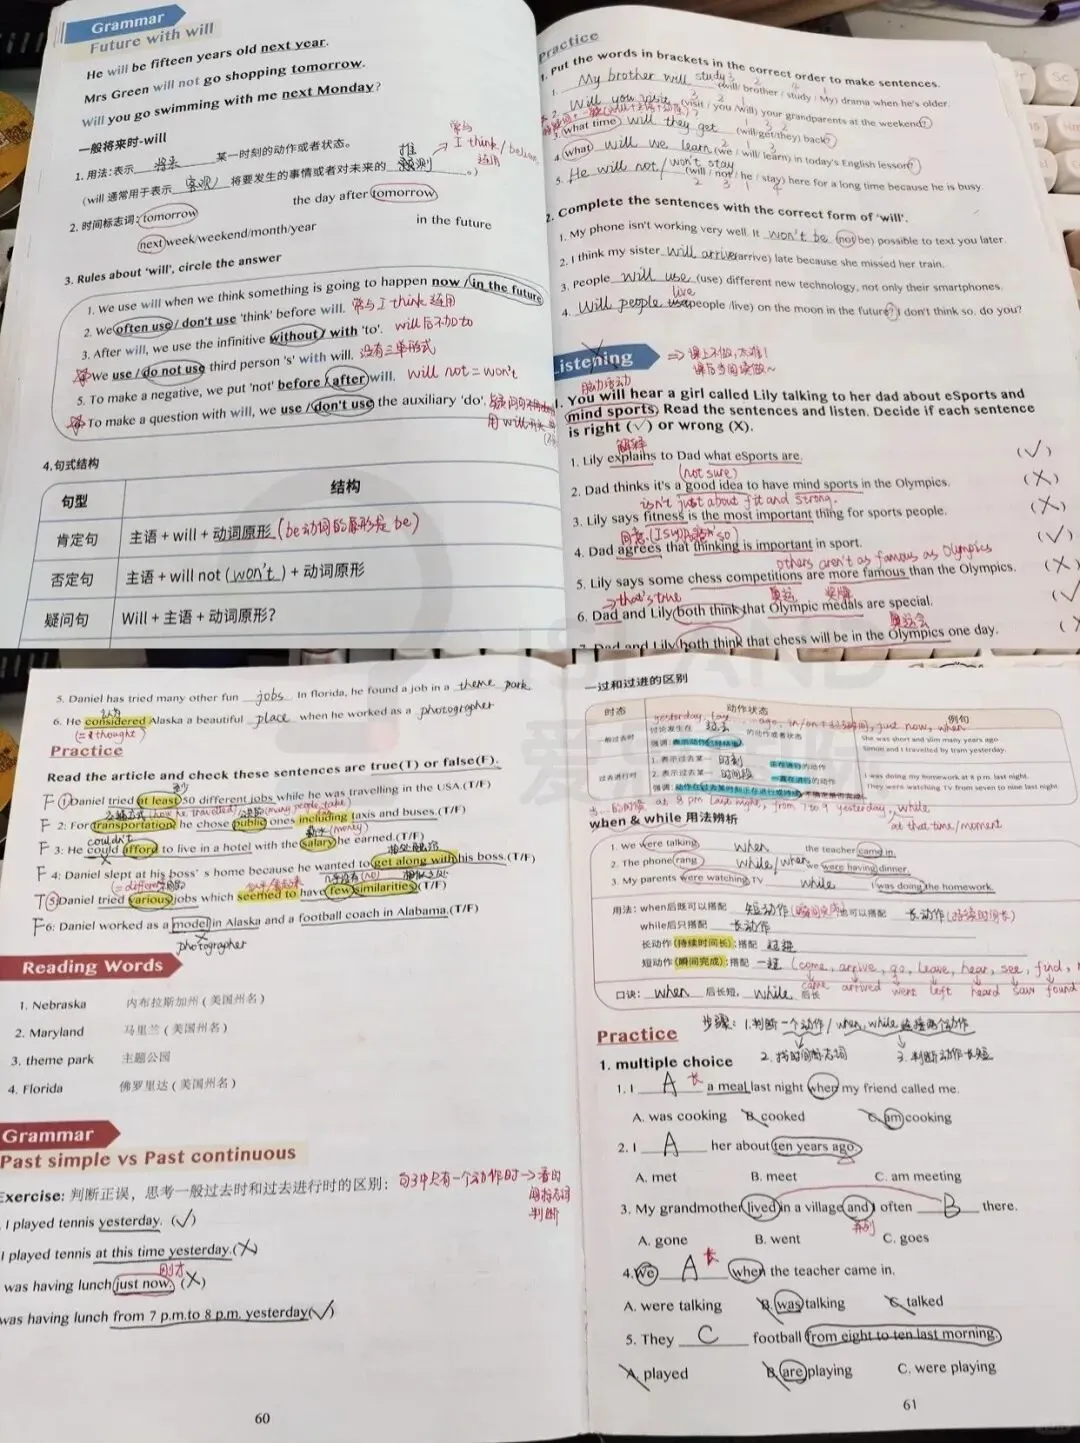 Grammar
Future with will
He will be fifteen years old next year.
Mrs Green will not go shopping tomorrow.
Will you go swimming with me next Monday?
一般将来时-will
1. 用法:表示 将来 某一时刻的动作或者状态。
(will 通常用于表示 客观 将要发生的事情或者对未来的 预测 。)
推
常与
I think / believe
连用
2. 时间标志词: tomorrow
the day after tomorrow
next week/weekend/month/year
in the future
3. Rules about ‘will’, circle the answer
1. We use will when we think something is going to happen now / in the future
2. We often use / don't use 'think' before will. 常与 I think 连用
3. After will, we use the infinitive without / with 'to'. will后不加to
We use / do not use third person 's' with will. 没有三单形式
5. To make a negative, we put 'not' before / after will. will not = won't
To make a question with will, we use / don't use the auxiliary 'do'.
用 will开头
4. 句式结构
句型 结构
肯定句 主语 + will + 动词原形 (be动词的原形是 be)
否定句 主语 + will not (won't) + 动词原形
疑问句 Will + 主语 + 动词原形?
Practice
1. Put the words in brackets in the correct order to make sentences.
1. My brother will study (will/ brother / study / My) drama when he's older.
2. Will you visit (visit / you /will) your grandparents at the weekend?
3. what time will they get (will/get/they) back?
4. what will we learn (we / will/ learn) in today's English lesson?
5. He will not / won't stay (will / not / he / stay) here for a long time because he is busy
2. Complete the sentences with the correct form of 'will'.
1. My phone isn't working very well. It won't be (not be) possible to text you later.
2. I think my sister will arrive (arrive) late because she missed her train.
3. People will use (use) different new technology, not only their smartphones.
live
4. Will people (people /live) on the moon in the future? I don't think so, do you?
Listening
⇒ 课上不做,太难!
脑力活动
1. You will hear a girl called Lily talking to her dad about eSports and
mind sports. Read the sentences and listen. Decide if each sentence
is right (√) or wrong (X).
解释
1. Lily explains to Dad what eSports are. (√)
(not sure)
2. Dad thinks it's a good idea to have mind sports in the Olympics. (X)
isn't just about fit and strong.
3. Lily says fitness is the most important thing for sports people. (X)
同意
4. Dad agrees that thinking is important in sport. (√)
others aren't as famous as Olympics
5. Lily says some chess competitions are more famous than the Olympics. (X)
→ that's true 奥运 奖牌
6. Dad and Lily both think that Olympic medals are special. (√
奥运会
7. Dad and Lily both think that chess will be in the Olympics one day.
5. Daniel has tried many other fun jobs In florida, he found a job in a theme park
认为
6. He considered Alaska a beautiful place when he worked as a photographer
(= thought)
Practice
Read the article and check these sentences are true(T) or false(F).
F 1 Daniel tried at least 50 different jobs while he was travelling in the USA.(T/F)
(how he travelled) (many people take)
F 2: For transportation, he chose public ones including taxis and buses.(T/F)
couldn't (money)
F 3: He could afford to live in a hotel with the salary he earned.(T/F)
F 4: Daniel slept at his boss' s home because he wanted to get along with his boss.(T/F)
T 5 Daniel tried various jobs which seemed to have few similarities.(T/F)
F 6: Daniel worked as a model in Alaska and a football coach in Alabama.(T/F)
photographer
Reading Words
1. Nebraska 内布拉斯加州 ( 美国州名 )
2. Maryland 马里兰 ( 美国州名 )
3. theme park 主题公园
4. Florida 佛罗里达 ( 美国州名 )
Grammar
Past simple vs Past continuous
Exercise: 判断正误，思考一般过去时和过去进行时的区别:
句子中只有一个动作时→看时
间标志词
判断
I played tennis yesterday. (√)
I played tennis at this time yesterday.(X)
刚才
was having lunch just now. (X)
was having lunch from 7 p.m.to 8 p.m. yesterday(√)
60
一过和过进的区别
时态 动作状态 例句
一般过去时
讨论发生在 过去 的动作或者状态
She was short and slim many years ago
Simon and I travelled by tram yesterday.
过去进行时
1. 表示过去某一 时刻 正在进行的动作
2. 表示过去某一 时间段 一直在进行的动作
I was doing my homework at 8 p.m. last night.
They were watching TV from seven to nine last night
at 8 pm last night, from 7 to 9 yesterday, while
at that time/moment
when & while 用法辨析
1. We were talking when the teacher came in.
2. The phone rang while/when we were having dinner.
3. My parents were watching TV while I was doing the homework.
用法: when后既可以搭配 短动作 (瞬间完成) 也可以搭配 长动作 (持续时间长)
while后只搭配 长动作
长动作 (持续时间长): 搭配 过进
短动作 (瞬间完成): 搭配 一过 (come, arrive, go, leave, hear, see, find,
came arrived went left heard saw found
口诀: when 后长短, while 后长
Practice
步骤: 1.判断一个动作 / when, while 连接两个动作
2. 找时间标志词 3. 判断动作长短
1. multiple choice
1. I A a meal last night when my friend called me.
长
A. was cooking B. cooked C. am cooking
2. I A her about ten years ago.
A. met B. meet C. am meeting
3. My grandmother lived in a village and I often B there.
并列
A. gone B. went C. goes
4. We A when the teacher came in.
长
A. were talking B. was talking C. talked
5. They C football from eight to ten last morning.
A. played B. are playing C. were playing
61